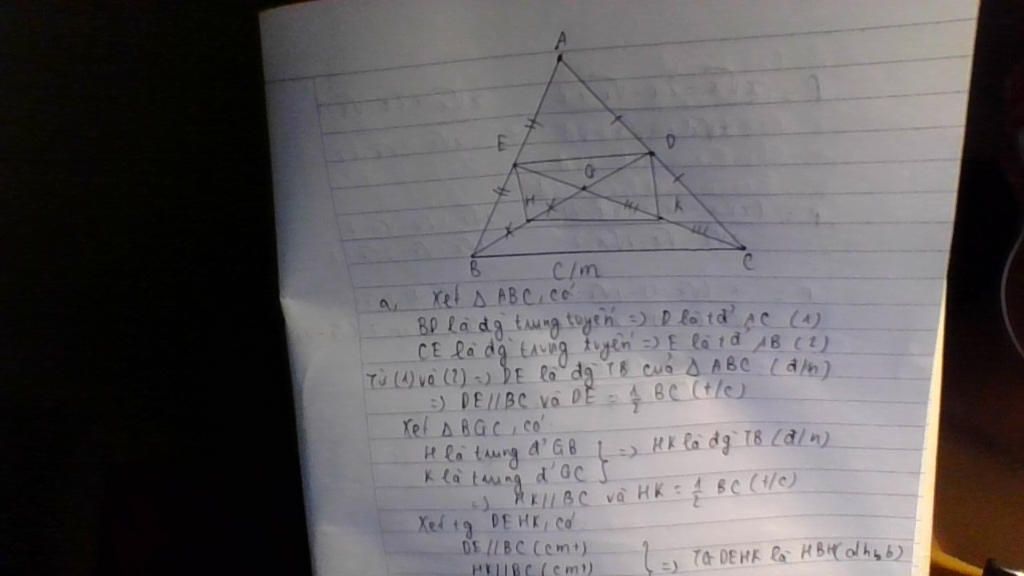 A
E
D
G
H
K
B
C
C/m
a, Xét △ ABC, có
BD là đg trung tuyến => D là tđ' AC (1)
CE là đg trung tuyến => E là tđ' AB (2)
Từ (1) và (2) => DE là đg TB của △ ABC (đ/n)
=> DE//BC và DE = 1/2 BC (t/c)
Xét △ BGC, có
H là trung đ' GB } => HK là đg TB (đ/n)
K là trung đ' GC
=> HK//BC và HK = 1/2 BC (t/c)
Xét tg DEHK, có
DE//BC (cmt) } => TG DEHK là HBH (dhnb)
HK//BC (cmt)